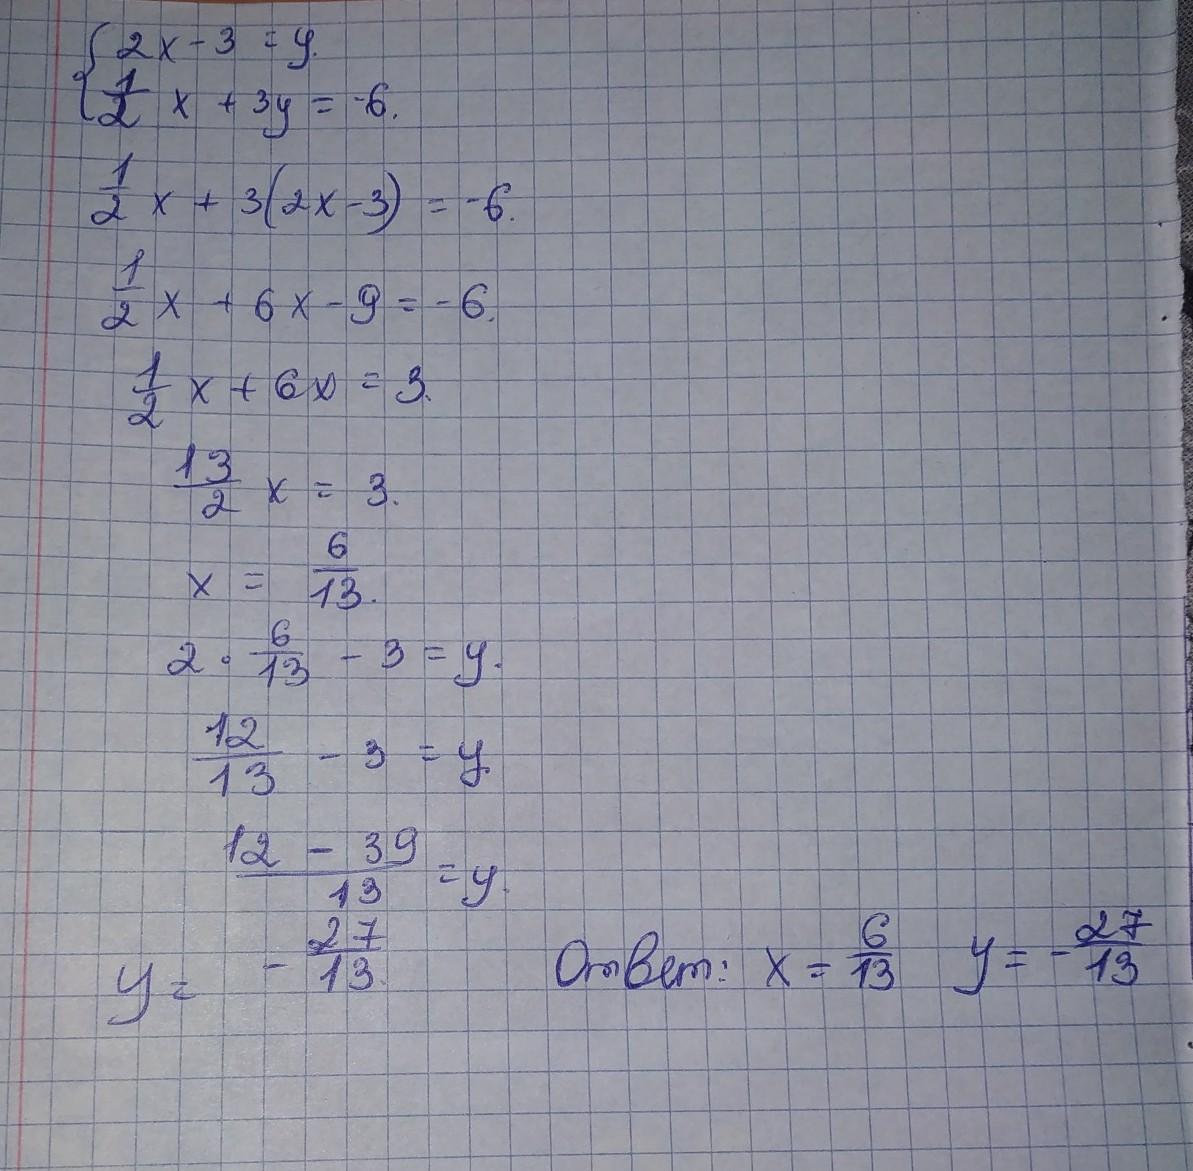 { 2x - 3 = y.
1/2 x + 3y = -6.
1/2 x + 3(2x - 3) = -6.
1/2 x + 6x - 9 = -6.
1/2 x + 6x = 3.
13/2 x = 3.
x = 6/13.
2 · 6/13 - 3 = y.
12/13 - 3 = y
12 - 39/13 = y.
y = - 27/13. Ответ: x = 6/13 y = - 27/13